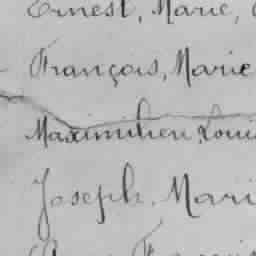 Ernest, Marie,
François, Marie
Maximilien Louis
Joseph. Mari